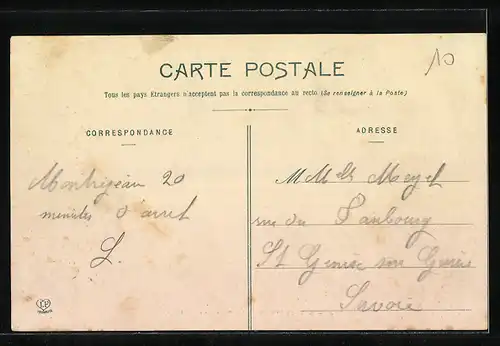 10
CARTE POSTALE
Tous les pays Etrangers n'acceptent pas la correspondance au recto (Se renseigner à la Poste)
CORRESPONDANCE
Montrejeau 20
minutes d'arret
L.
ADRESSE
rue du Faubourg
St Genix sur Guiers
Savoie